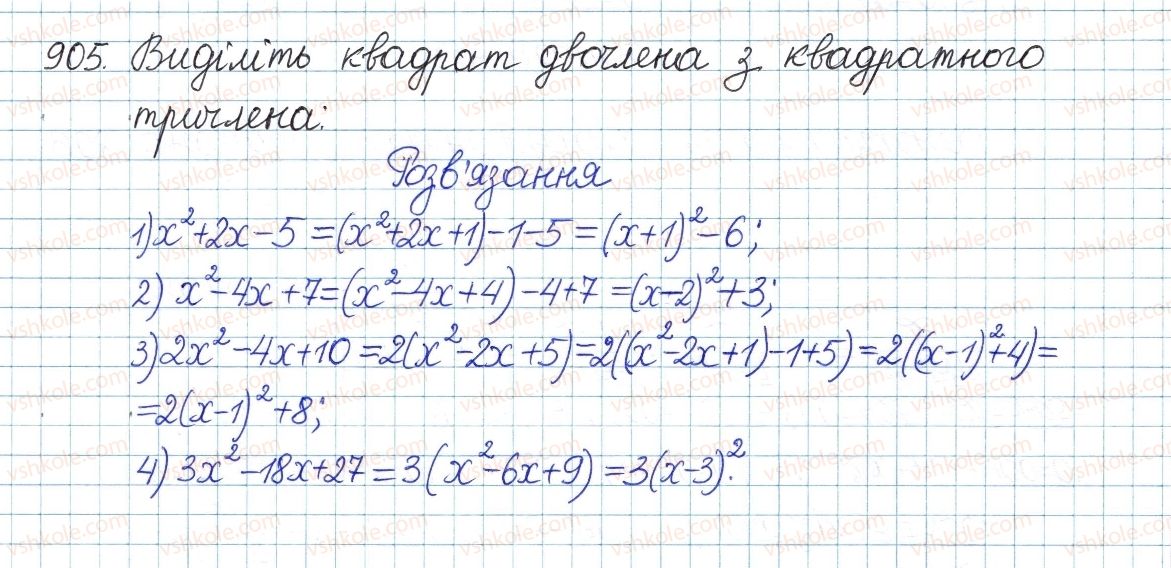 905. Виділіть квадрат двочлена з квадратного
тричлена:
Розв'язання
1) x²+2x-5=(x²+2x+1)-1-5=(x+1)²-6;
2) x²-4x+7=(x²-4x+4)-4+7=(x-2)²+3;
3) 2x²-4x+10=2(x²-2x+5)=2((x²-2x+1)-1+5)=2((x-1)²+4)=
=2(x-1)²+8;
4) 3x²-18x+27=3(x²-6x+9)=3(x-3)².